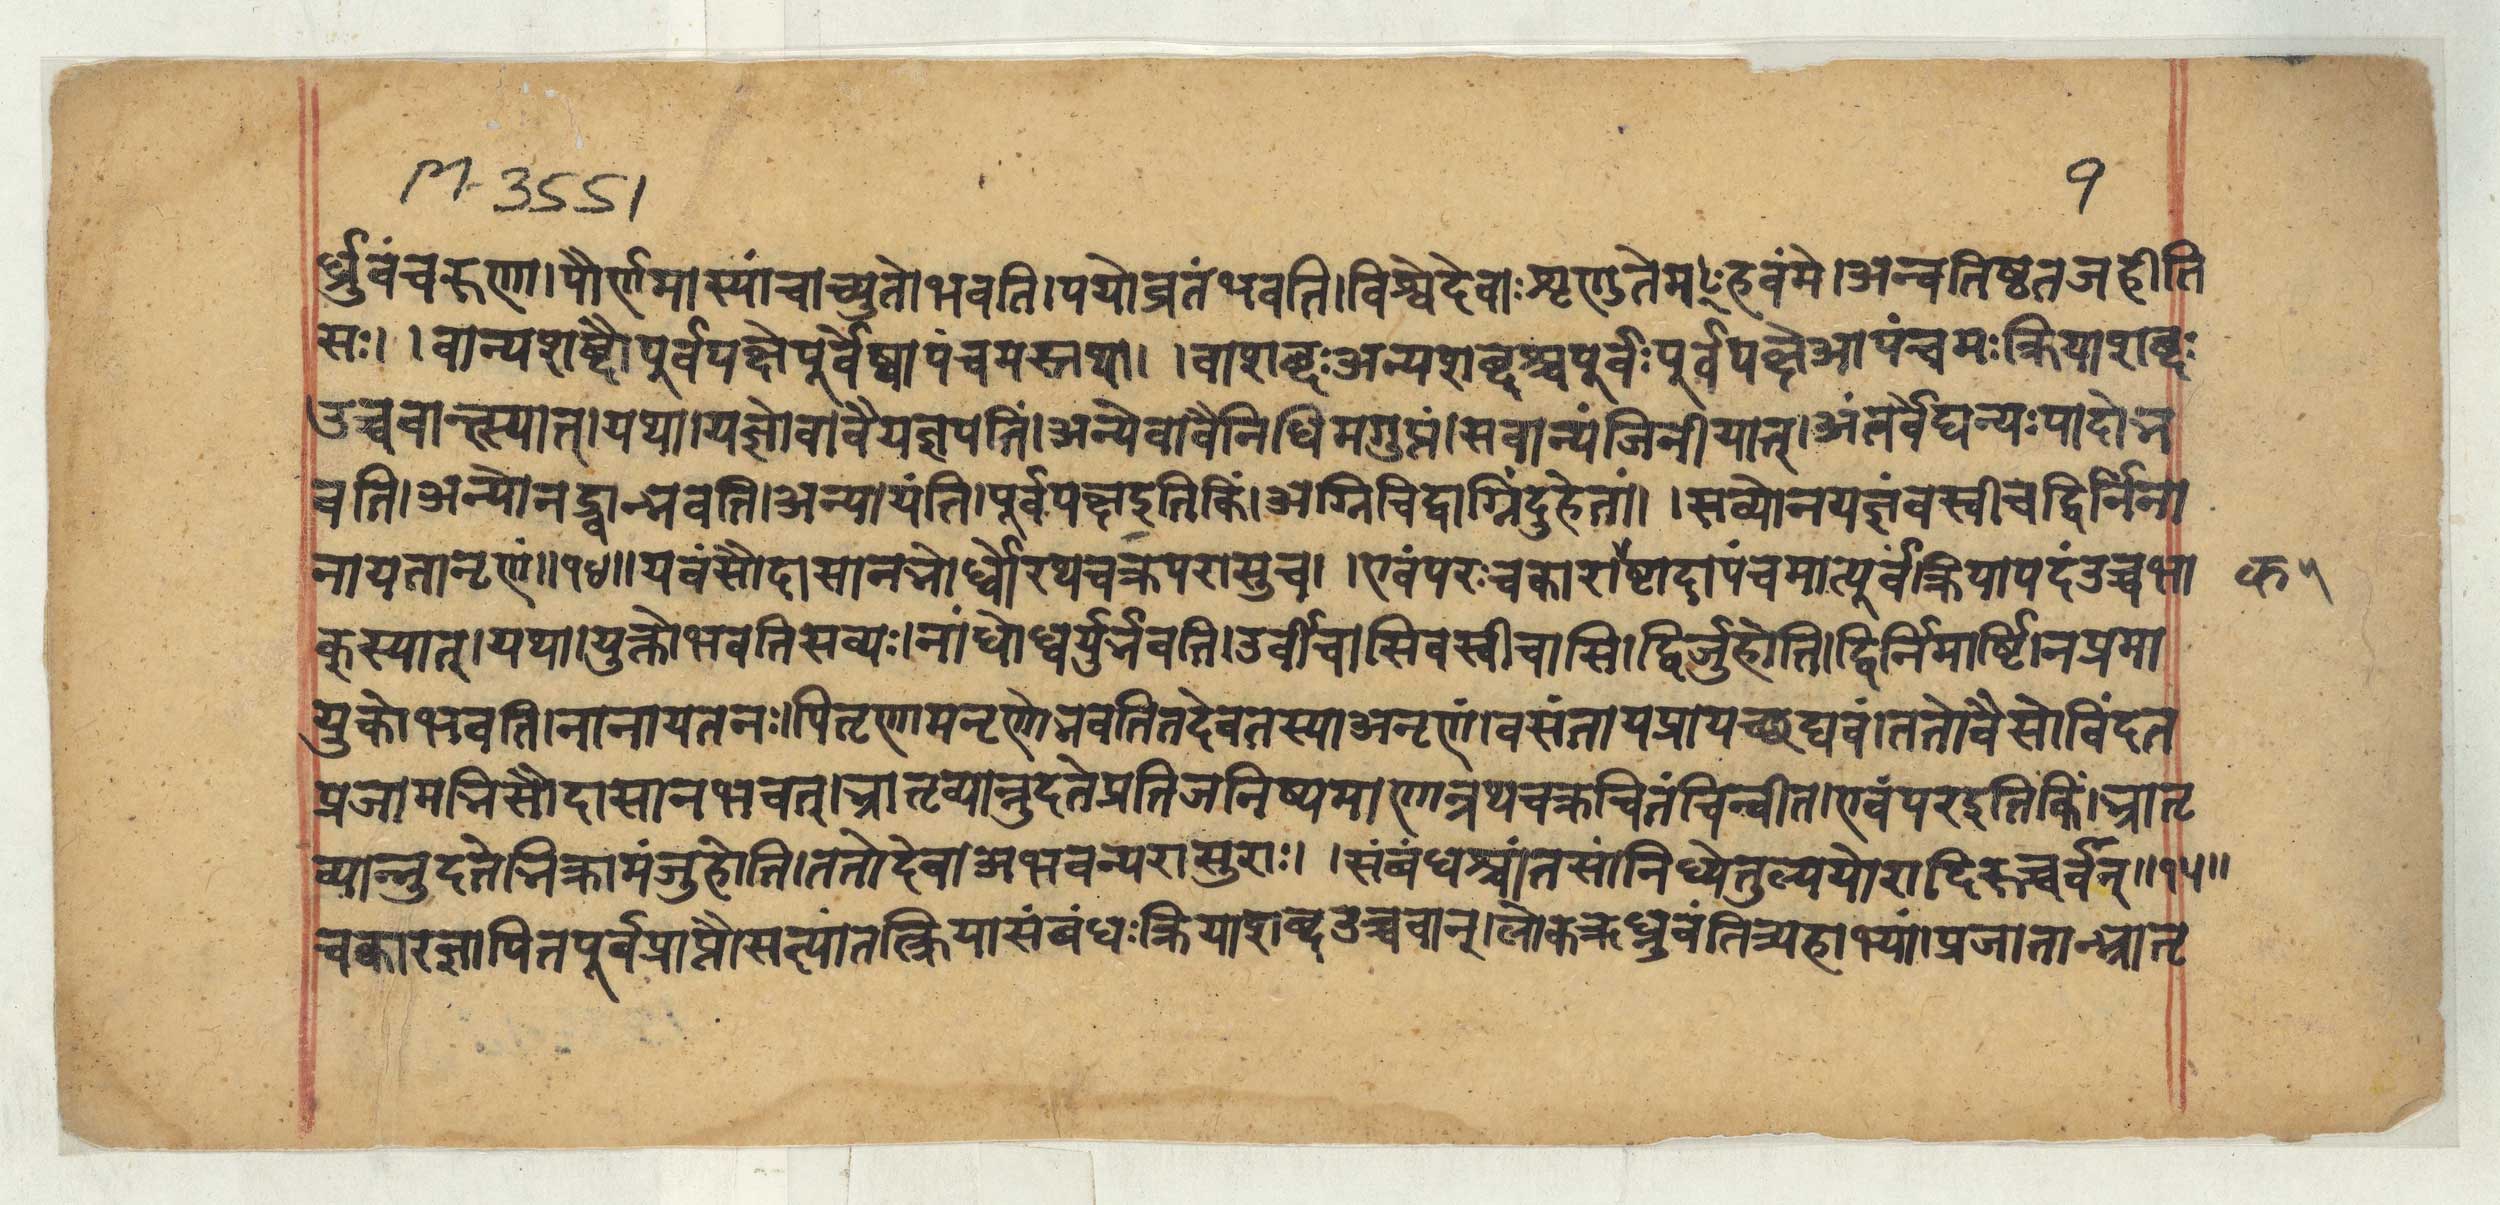 M-3551
१
र्ध्रुवंचरूणा।पौर्णमास्यांचाच्युतोभवति।पयोव्रतंभवति।विश्वेदेवाःशृणुतेमꣳहवंमे।अन्वतिष्ठतजहीति
सः।।वान्यशब्दौपूर्वपक्षेपूर्वैष्वापंचमस्तथा।।वाशब्दःअन्यशब्दश्चपूर्वःपूर्वपक्षेआपंचमःक्रियाशब्दः
उच्चवान्त्स्यात्।यथा।यज्ञोवावैयज्ञपतिं।अन्येवावैनिधिमगुप्तं।सवान्यंजिनीयात्।अंतर्वेद्यन्यःपादोभ
वति।अन्योनड्वान्भवति।अन्यायंति।पूर्वपक्षइतिकिं।अग्निचिद्वाग्निंदुहेतां।।सव्योनयज्ञंवस्वीचद्विर्निना
नायतानृणं॥१४॥यवंसौदासानभोर्ध्वोरथचक्रपरासुच।।एवंपरःचकाराष्टादापंचमात्पूर्वंक्रियापदंउच्चभा
क५
क्स्यात्।यथा।युक्तोभवतिसव्यः।नांधोध्वर्युर्भवति।उर्वीचासिवस्वीचासि।द्विर्जुहोति।द्विर्निमार्ष्टि।नप्रमा
युकोभवति।नानायतनः।पितृणामनृणोभवतितदेवतस्याअनृणं।वसंतायप्रायच्छद्यवं।ततोवैसोविंदत
प्रजामभिसौदासानभवत्।भ्रातृव्यान्नुदतेप्रतिजनिष्यमाणान्रथचक्रचितंचिन्वीत।एवंपरइतिकिं।भ्रातृ
व्यान्नुदतेभिक्रामंजुहोति।ततोदेवाअभवन्परासुराः।।संबंधश्चांतसांनिध्येतुल्ययोरादिरुच्चर्वन्॥१५॥
चकारज्ञापितपूर्वप्राप्तौसत्यांतत्क्रियासंबंधःक्रियाशब्दउच्चवान्।लोकक्रध्रुवंतित्र्यहाभ्यां।प्रजातान्भ्रातृ